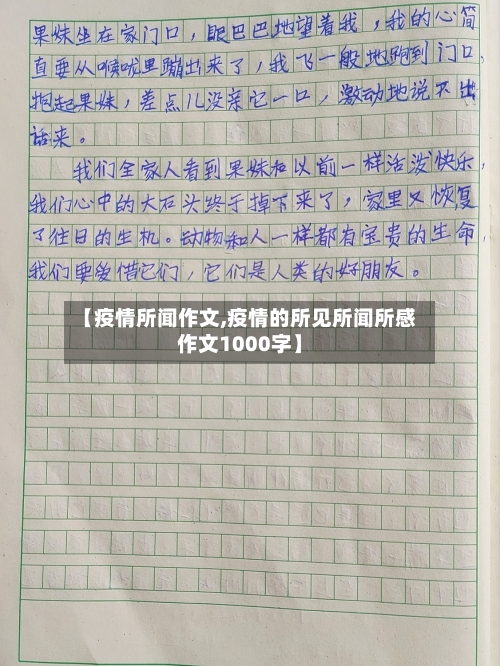 果妹坐在家门口，眼巴巴地望着我，我的心简
直要从喉咙里蹦出来了，我飞一般地跑到门口，
抱起果妹，差点儿没亲它一口，激动地说不出
话来。
我们全家人看到果妹和以前一样活泼快乐，
我们心中的大石头终于掉下来了，家里又恢复
了往日的生机。动物和人一样都有宝贵的生命，
我们要爱惜它们，它们是人类的好朋友。
【疫情所闻作文,疫情的所见所闻所感
作文1000字】